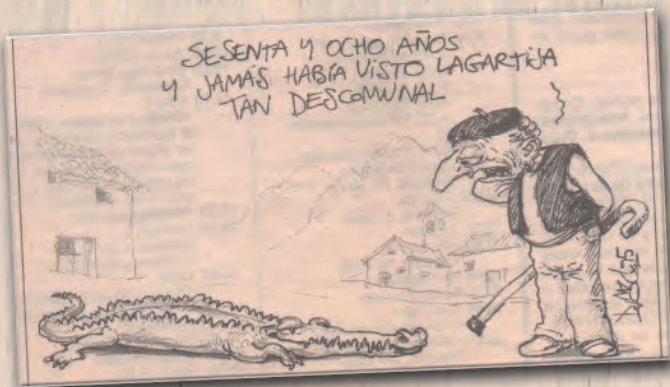 SESENTA Y OCHO AÑOS
Y JAMÁS HABÍA VISTO LAGARTIJA
TAN DESCOMUNAL